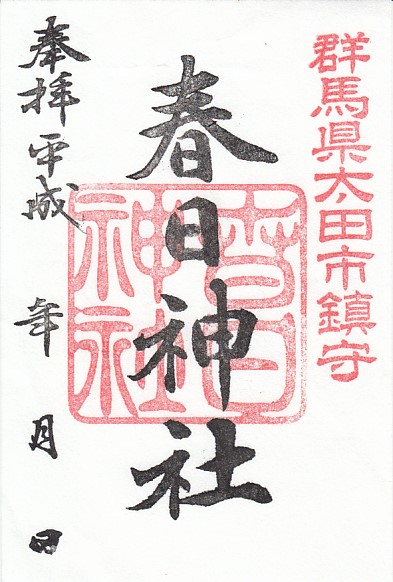 群馬県太田市鎮守
春日神社
春日神社
奉拝 平成 年 月 日